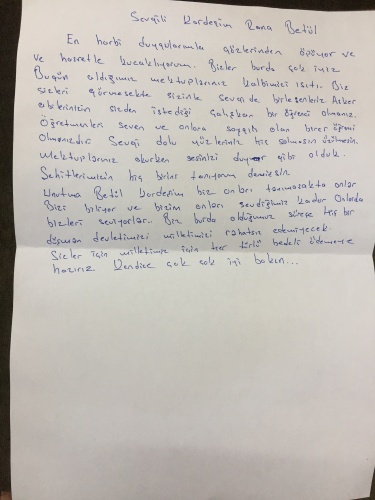 Sevgili Kardeşim Rana Betül
En harbi duygularımla gözlerinden öpüyor ve
ve hasretle kucaklıyorum. Bizler burda çok iyiz
Bugün aldığımız mektuplarınız kalbimizi ısıttı. Biz
sizleri görmesekte sizinle sevgide birleşenbiriz Asker
abilerinizin sizden istediği çalışkan bir öğrenci olmanız.
Öğretmenleri seven ve onlara saygılı olan birer öğrenci
Olmanızdır Sevgi dolu yüzleriniz hiç solmasın üzülmesin.
Mektuplarınız okurken sesinizi duyar gibi olduk.
Şehitlerimizin hiç birini tanıyorum demişsin
Unutma Betül Kardeşim biz onları tanımasakta onlar
Bizi biliyor ve bizim onları sevdiğimiz kadar Onlarda
bizleri seviyorlar. Biz burda olduğumuz sürece hiç bir
düşman devletimizi milletimizi rahatsız edemiyecek.
Sizler için milletimiz için her türlü bedeli ödemeye
hazırız. Kendine çok çok iyi bakın...